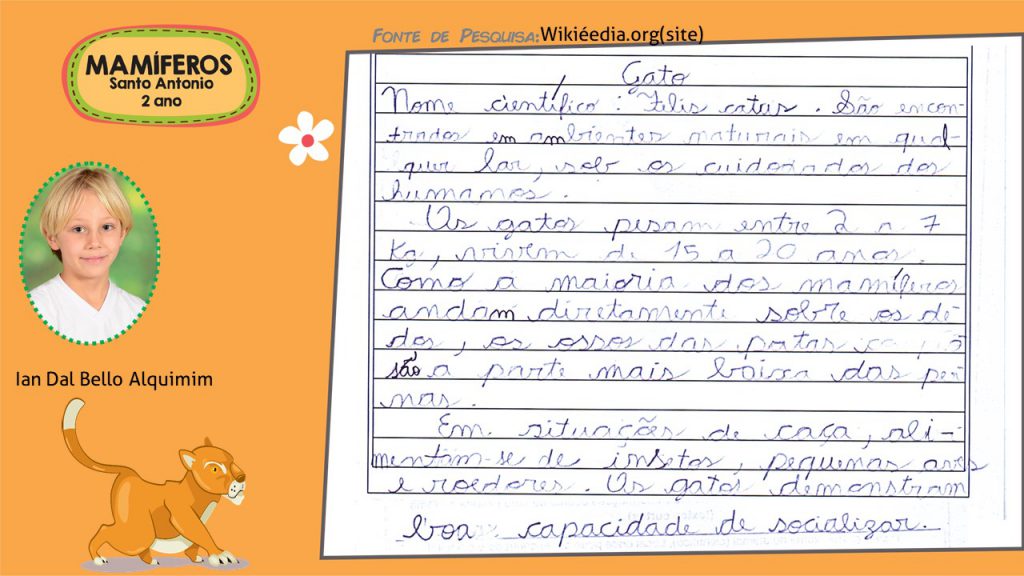 MAMÍFEROS
Santo Antonio
2 ano
FONTE DE PESQUISA:Wikiéedia.org(site)
Ian Dal Bello Alquimim
Gato
Nome científico : Felis catus . São encon-
trados em ambientes naturais em qual-
quer lar, sob os cuidadados dos
humamos .
Os gatos pesam entre 2 a 7
Kg, vivem de 15 a 20 anos.
Como a maioria dos mamíferos
andam diretamente sobre os de-
dos, os ossos das patas
são a parte mais baixa das per
nas .
Em situações de caça, ali-
mentam-se de insetos, pequenas aves
e roedores . Os gatos demonstram
boa capacidade de socializar.